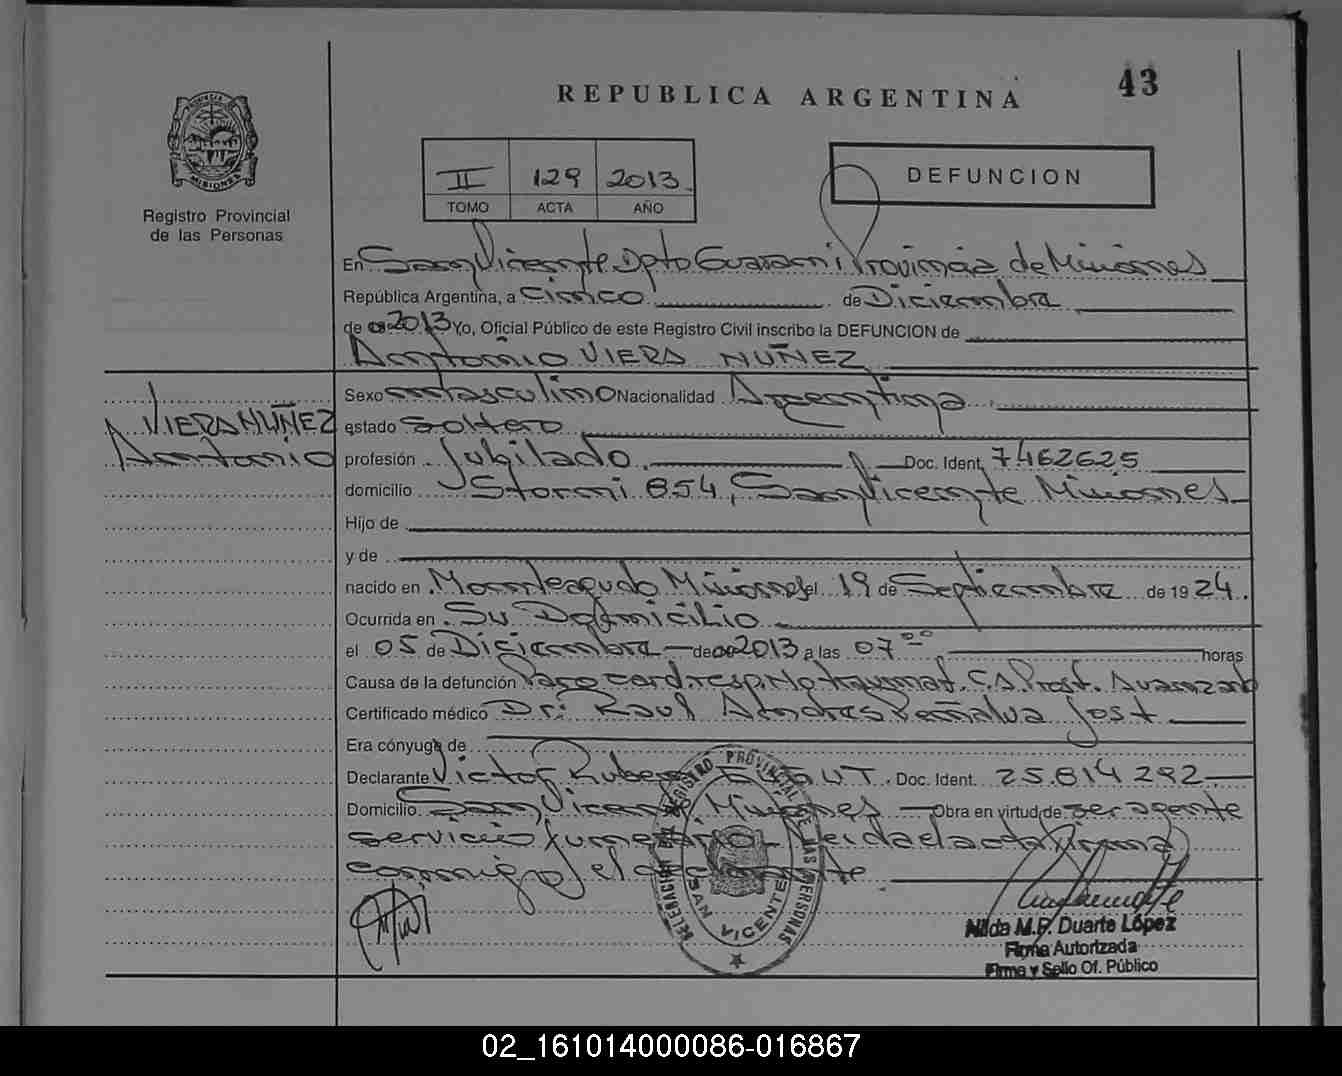 43
REPUBLICA ARGENTINA
PROVINCIA DE
MISIONES
Registro Provincial
de las Personas
II 129 2013
TOMO ACTA AÑO
DEFUNCION
En San Vicente Dpto Guarani Provincia de Misiones
República Argentina, a cinco de Diciembre
de 2013 Yo, Oficial Público de este Registro Civil inscribo la DEFUNCION de
Antonio VIERA NUÑEZ
VIERA NUÑEZ
Antonio
Sexo masculino Nacionalidad Argentina
estado Soltero
profesión Jubilado Doc. Ident. 7462625
domicilio Storni 854, San Vicente Misiones
Hijo de
y de
nacido en Monteagudo Misiones el 19 de Septiembre de 1924.
Ocurrida en Su Domicilio
el 05 de Diciembre de 2013 a las 07 00 horas
Causa de la defunción Paro card. resp. No traumat. C.A. Prost. Avanzado
Certificado médico Dr: Raul Andres Peñalva Jost
Era cónyuge de
Declarante Victor Ruben Doc. Ident. 25.814.292
Domicilio San Vicente Misiones Obra en virtud de ser agente
servicio funerario. Leida el acta firma
conmigo el declarante
DELEGACION DEL REGISTRO PROVINCIAL DE LAS PERSONAS
SAN VICENTE
Nilda M.P. Duarte López
Firma Autorizada
Firma y Sello Of. Público
02_161014000086-016867